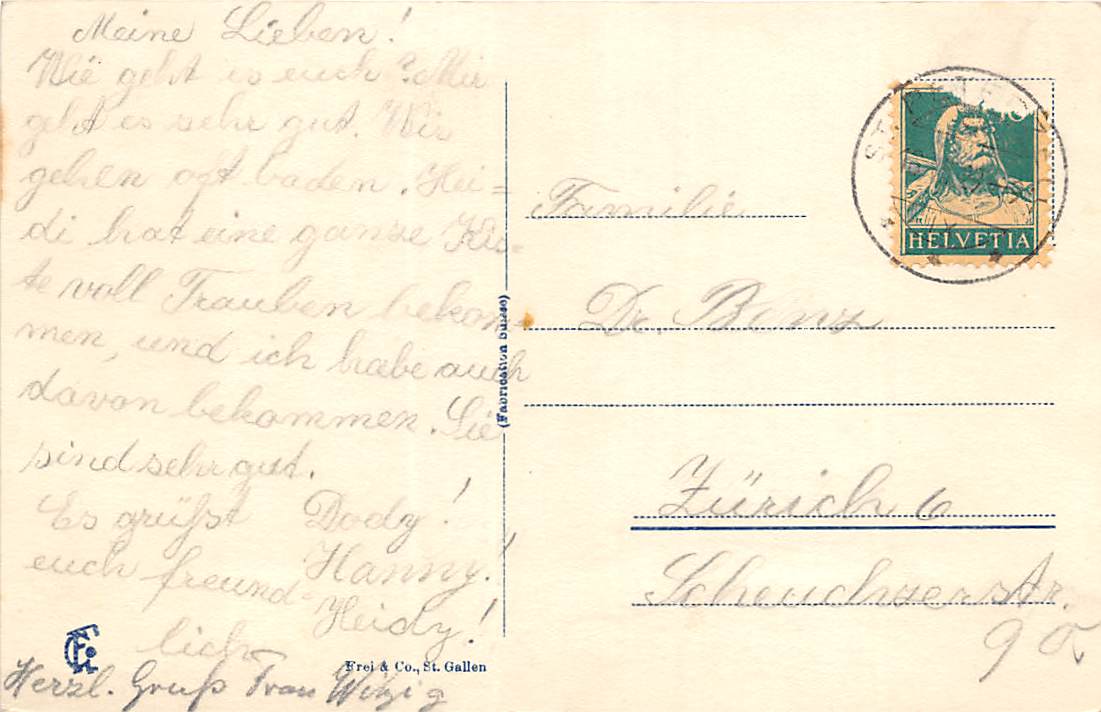 Meine Lieben!
Wie geht es euch? Mir
geht es sehr gut. Wir
gehen oft baden. Hei=
di hat eine ganze Kis-
te voll Trauben bekom-
men, und ich habe auch
davon bekommen. Sie
sind sehr gut.
Es grüßt Dody!
euch freund- Hanny!
lich Heidy!
Herzl. Gruß Frau Witzig
Frei & Co., St. Gallen
(Fabrication Suisse)
HELVETIA
Familie
Dr. Benz
Zürich 6
Scheuchzerstr.